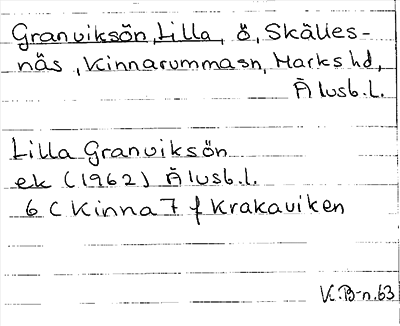 Granviksön, Lilla, ö, Skälles-
näs, Kinnarummasn, Marks hd,
Älvsb.l.
Lilla Granviksön
ek (1962) Älvsb.l.
6 C Kinna 7 f Krakaviken
K.B-n.63